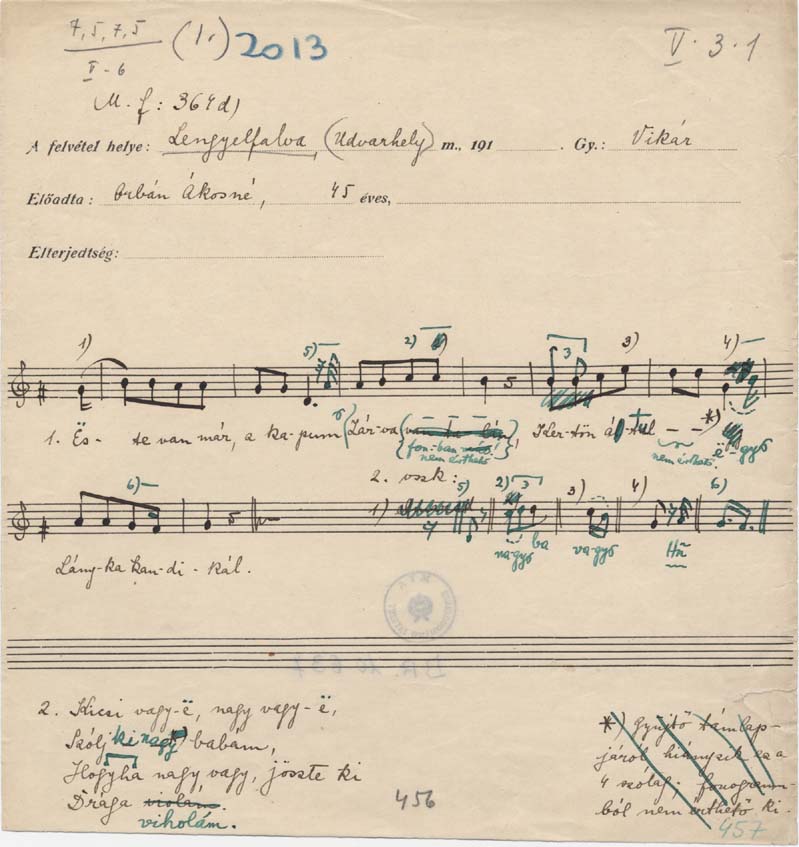 7, 5, 7, 5 (1.) 2013 V. 3. 1
V - 6
M. f: 364d)
A felvétel helye: Lengyelfalva, (Udvarhely) m., 191 . Gy.: Vikár
Előadta: Orbán Ákosné, 45 éves,
Elterjedtség:
1) 5) 2) 3 3) 4)
1. Ës- te van már, a ka-pum Zár-va
fon-ban
nem érthető nem érthető ë - gyö
2. vszk:
6) 1) 5) 2) 3 3) 4) 6)
na-gyö ba va-gyö Hü
Lány-ka kan-di-kál.
2. Kicsi vagy-ë, nagy vagy-ë,
Szólj ki nagy babám,
Hogyha nagy vagy, jöszte ki
Drága violám.
viholám.
*) Gyűjtő támlap-
járól hiányzik ez a
4 szótag. fonogramm-
ból nem érthető ki.
456
457